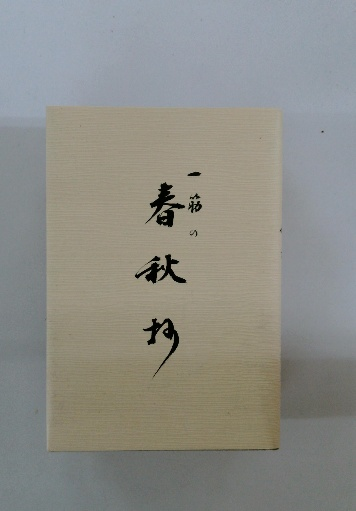 一筋の
春秋抄